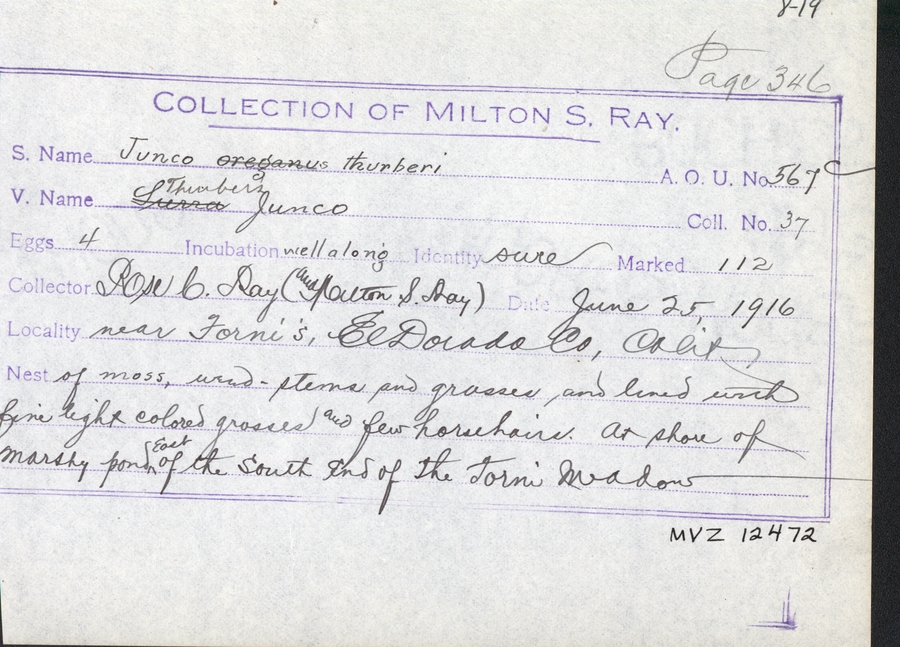 8-19
Page 346
COLLECTION OF MILTON S. RAY.
S. Name Junco oreganus thurberi
A. O. U. No. 567c
V. Name Sierra Thurber's Junco
Coll. No. 37
Eggs 4 Incubation well along Identity sure Marked 112
Collector Rose C. Ray (and Milton S. Ray) Date June 25, 1916
Locality near Forni's, El Dorado Co, Calif
Nest of moss, weed-stems and grasses and lined with
fine light colored grasses and few horsehairs. At shore of
marshy pond East of the South End of the Forni Meadow
MVZ 12472